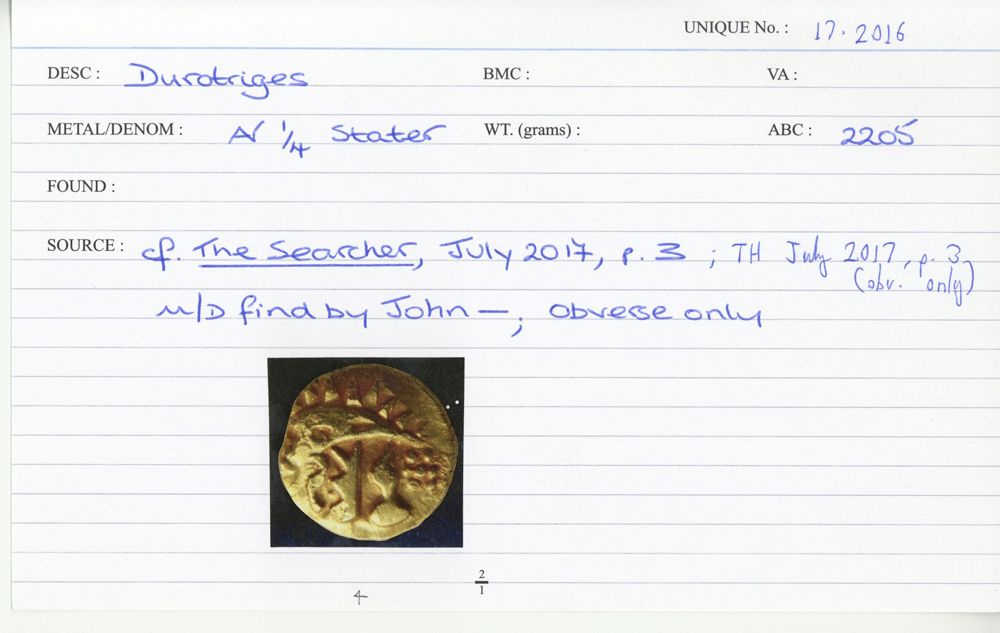 UNIQUE No. : 17.2016
DESC : Durotriges BMC : VA :
METAL/DENOM : AV 1/4 Stater WT. (grams) : ABC : 2205
FOUND :
SOURCE : cf. The Searcher, July 2017, p. 3 ; TH July 2017, p. 3,
(obv. only)
M/D find by John —; obverse only
2
1
4